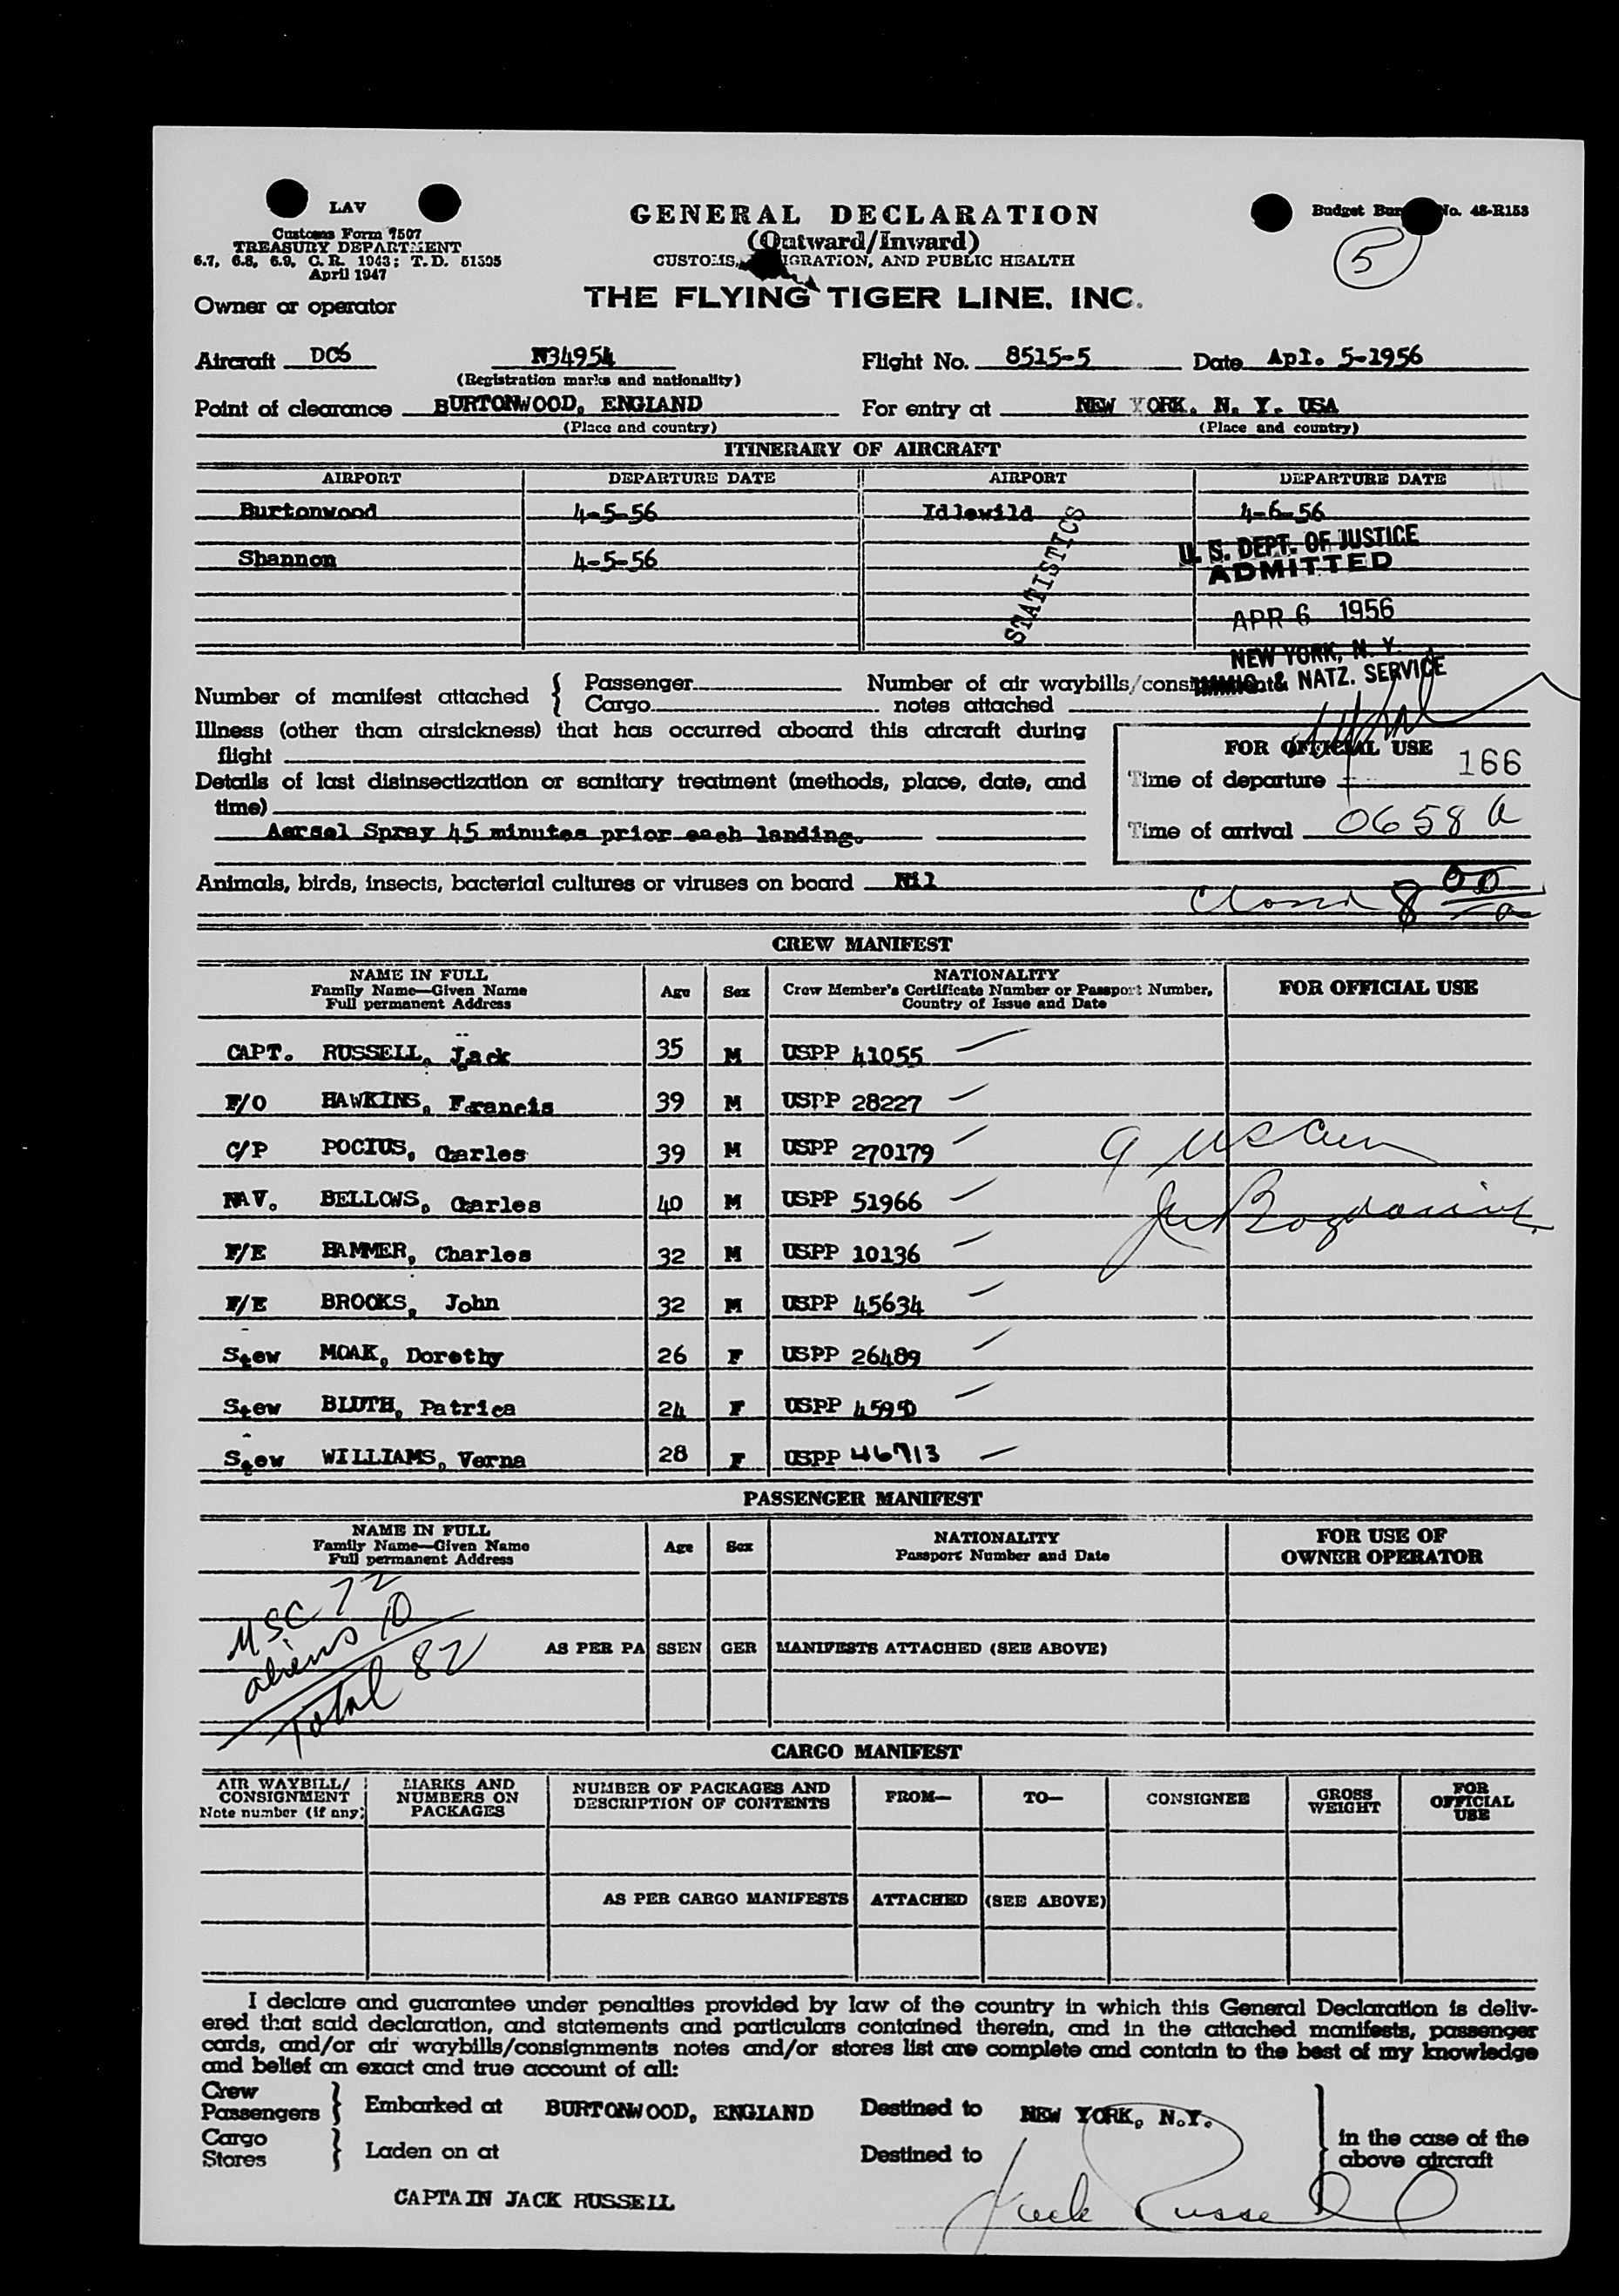 LAV
Customs Form 7507
TREASURY DEPARTMENT
6.7, 6.8, 6.9, C. R. 1943; T. D. 51505
April 1947
GENERAL DECLARATION
(Outward/Inward)
CUSTOMS, IGRATION, AND PUBLIC HEALTH
Budget Bur No. 48-R153
5
Owner or operator THE FLYING TIGER LINE, INC.
Aircraft DC6 N34954 Flight No. 8515-5 Date Apl. 5-1956
(Registration marks and nationality)
Point of clearance BURTONWOOD, ENGLAND For entry at NEW YORK. N. Y. USA
(Place and country) (Place and country)
ITINERARY OF AIRCRAFT
AIRPORT DEPARTURE DATE AIRPORT DEPARTURE DATE
Burtonwood 4-5-56 Idlewild 4-6-56
Shannon 4-5-56
STATISTICS
U. S. DEPT. OF JUSTICE
ADMITTED
APR 6 1956
NEW YORK, N. Y.
IMMIG. & NATZ. SERVICE
Number of manifest attached { Passenger Number of air waybills/consignment
Cargo notes attached
Illness (other than airsickness) that has occurred aboard this aircraft during
flight
Details of last disinsectization or sanitary treatment (methods, place, date, and
time)
Aersol Spray 45 minutes prior each landing.
FOR OFFICIAL USE
166
Time of departure
Time of arrival 0658 a
Animals, birds, insects, bacterial cultures or viruses on board Nil
Closed 8 00 a
CREW MANIFEST
NAME IN FULL
Family Name—Given Name
Full permanent Address
Age Sex
NATIONALITY
Crew Member's Certificate Number or Passport Number,
Country of Issue and Date
FOR OFFICIAL USE
CAPT. RUSSELL, Jack 35 M USPP 41055
F/O HAWKINS, Francis 39 M USPP 28227
C/P POCIUS, Charles 39 M USPP 270179
NAV. BELLOWS, Charles 40 M USPP 51966
F/E HAMMER, Charles 32 M USPP 10136
F/E BROOKS, John 32 M USPP 45634
Stew MOAK, Dorothy 26 F USPP 26489
Stew BLUTH, Patrica 24 F USPP 45950
Stew WILLIAMS, Verna 28 F USPP 46713
9
PASSENGER MANIFEST
NAME IN FULL
Family Name—Given Name
Full permanent Address
Age Sex
NATIONALITY
Passport Number and Date
FOR USE OF
OWNER OPERATOR
USC 72
aliens 10
Total 82
AS PER PASSENGER MANIFESTS ATTACHED (SEE ABOVE)
CARGO MANIFEST
AIR WAYBILL/
CONSIGNMENT
Note number (if any)
MARKS AND
NUMBERS ON
PACKAGES
NUMBER OF PACKAGES AND
DESCRIPTION OF CONTENTS
FROM—
TO—
CONSIGNEE
GROSS
WEIGHT
FOR
OFFICIAL
USE
AS PER CARGO MANIFESTS ATTACHED (SEE ABOVE)
I declare and guarantee under penalties provided by law of the country in which this General Declaration is deliv-
ered that said declaration, and statements and particulars contained therein, and in the attached manifests, passenger
cards, and/or air waybills/consignments notes and/or stores list are complete and contain to the best of my knowledge
and belief an exact and true account of all:
Crew
Passengers } Embarked at BURTONWOOD, ENGLAND Destined to NEW YORK, N.Y.
Cargo
Stores } Laden on at Destined to
in the case of the
above aircraft
CAPTAIN JACK RUSSELL
Jack Russell